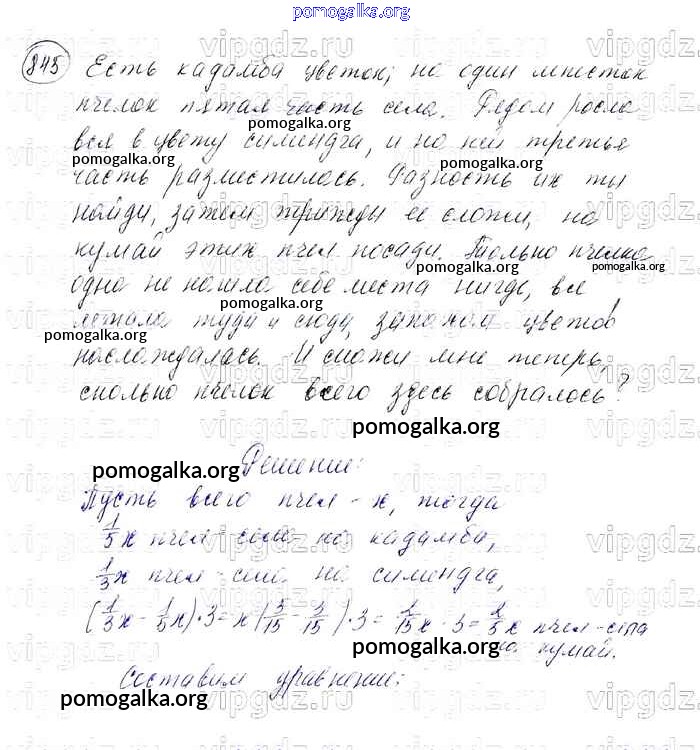 pomogalka.org
845 Есть кадамба цветок; на один лепесток
пчелок пятая часть села. Рядом росла
вся в цвету сименгда, и на ней третья
часть разместилась. Разность их ты
найди, затем трижды ее сложи, на
кутай этих пчел посади. Только пчелка
одна не нашла себе места нигде, все
летала туда и сюда, запахом цветов
наслаждалась. И скажи мне теперь,
сколько пчелок всего здесь собралось?
Решение:
Пусть всего пчел - х, тогда
1/5х пчел - село на кадамба,
1/3х пчел - село на сименгда,
(1/3х - 1/5х)·3 = х(5/15 - 3/15)·3 = 2/15х·3 = 2/5х пчел - села
на кутай.
Составим уравнение: